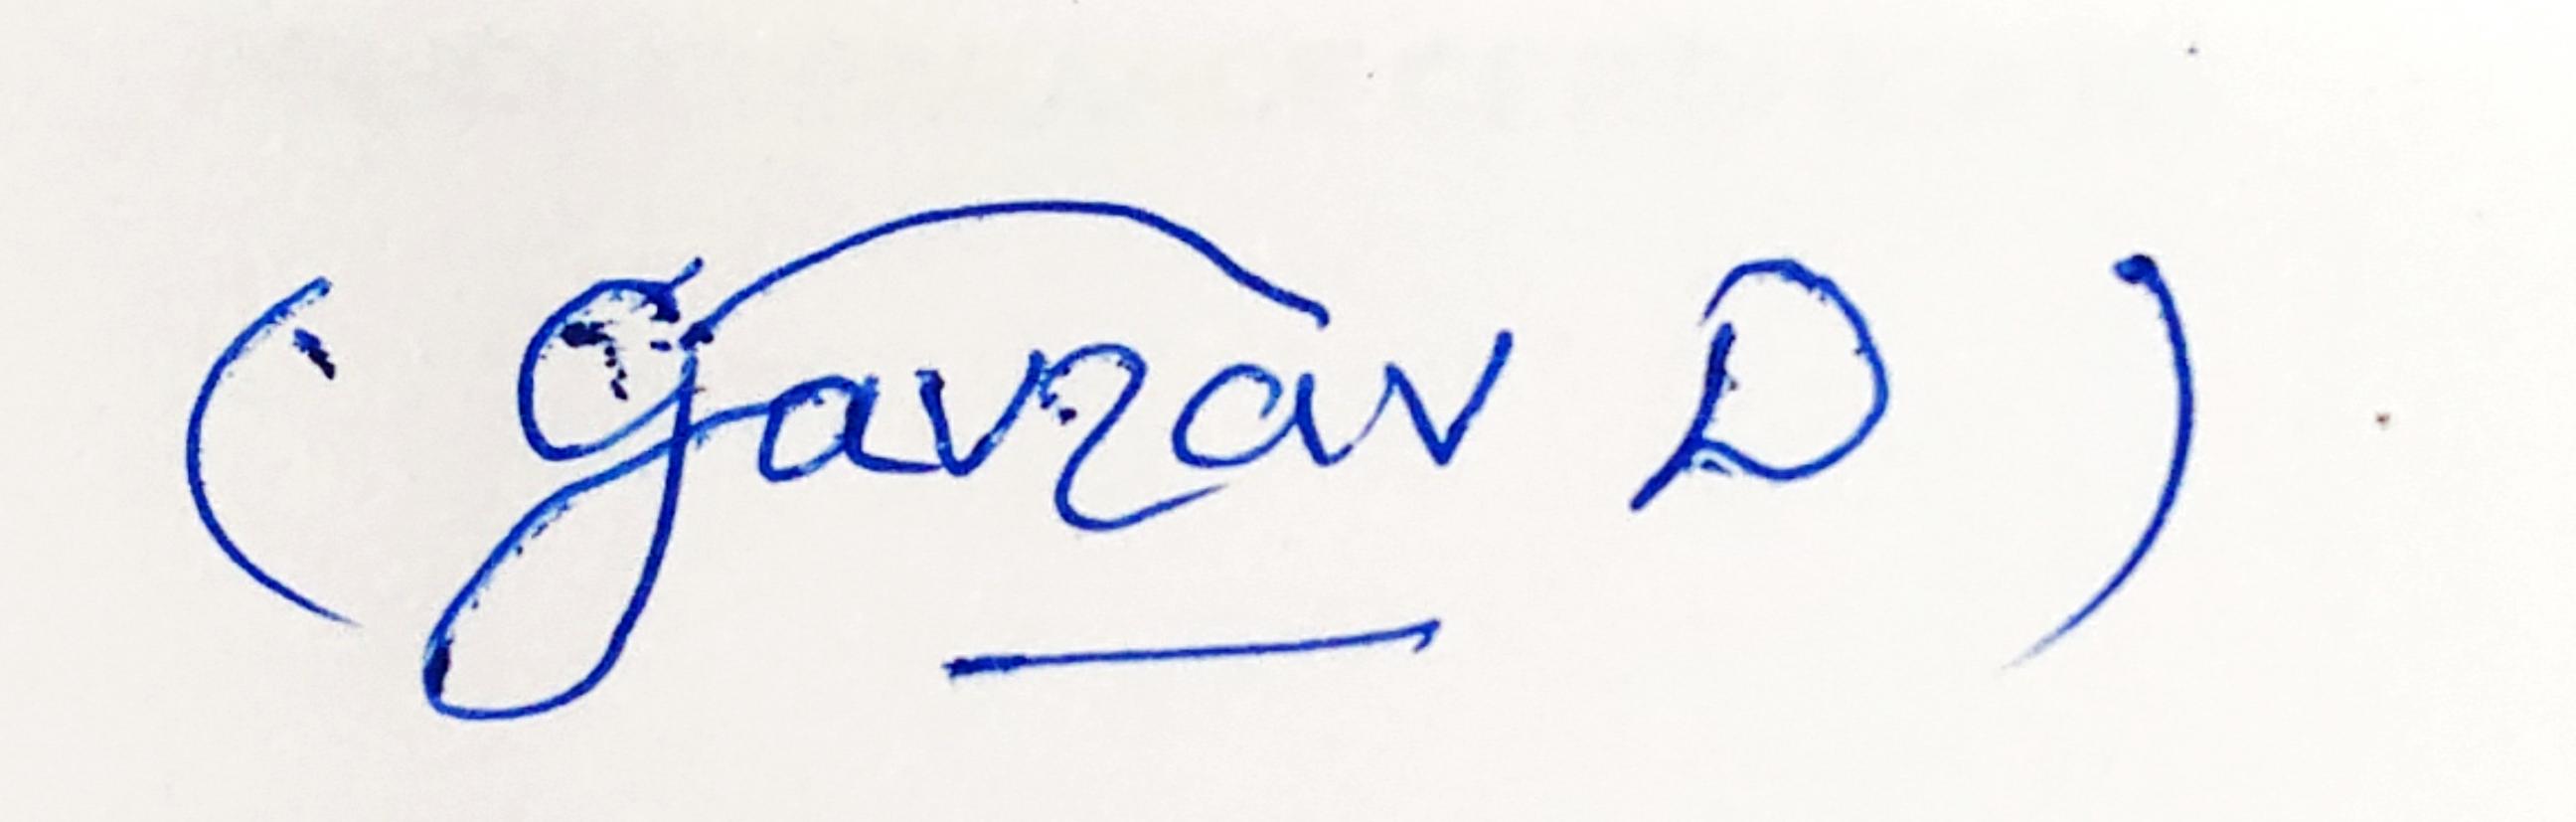 (Gavrav D)